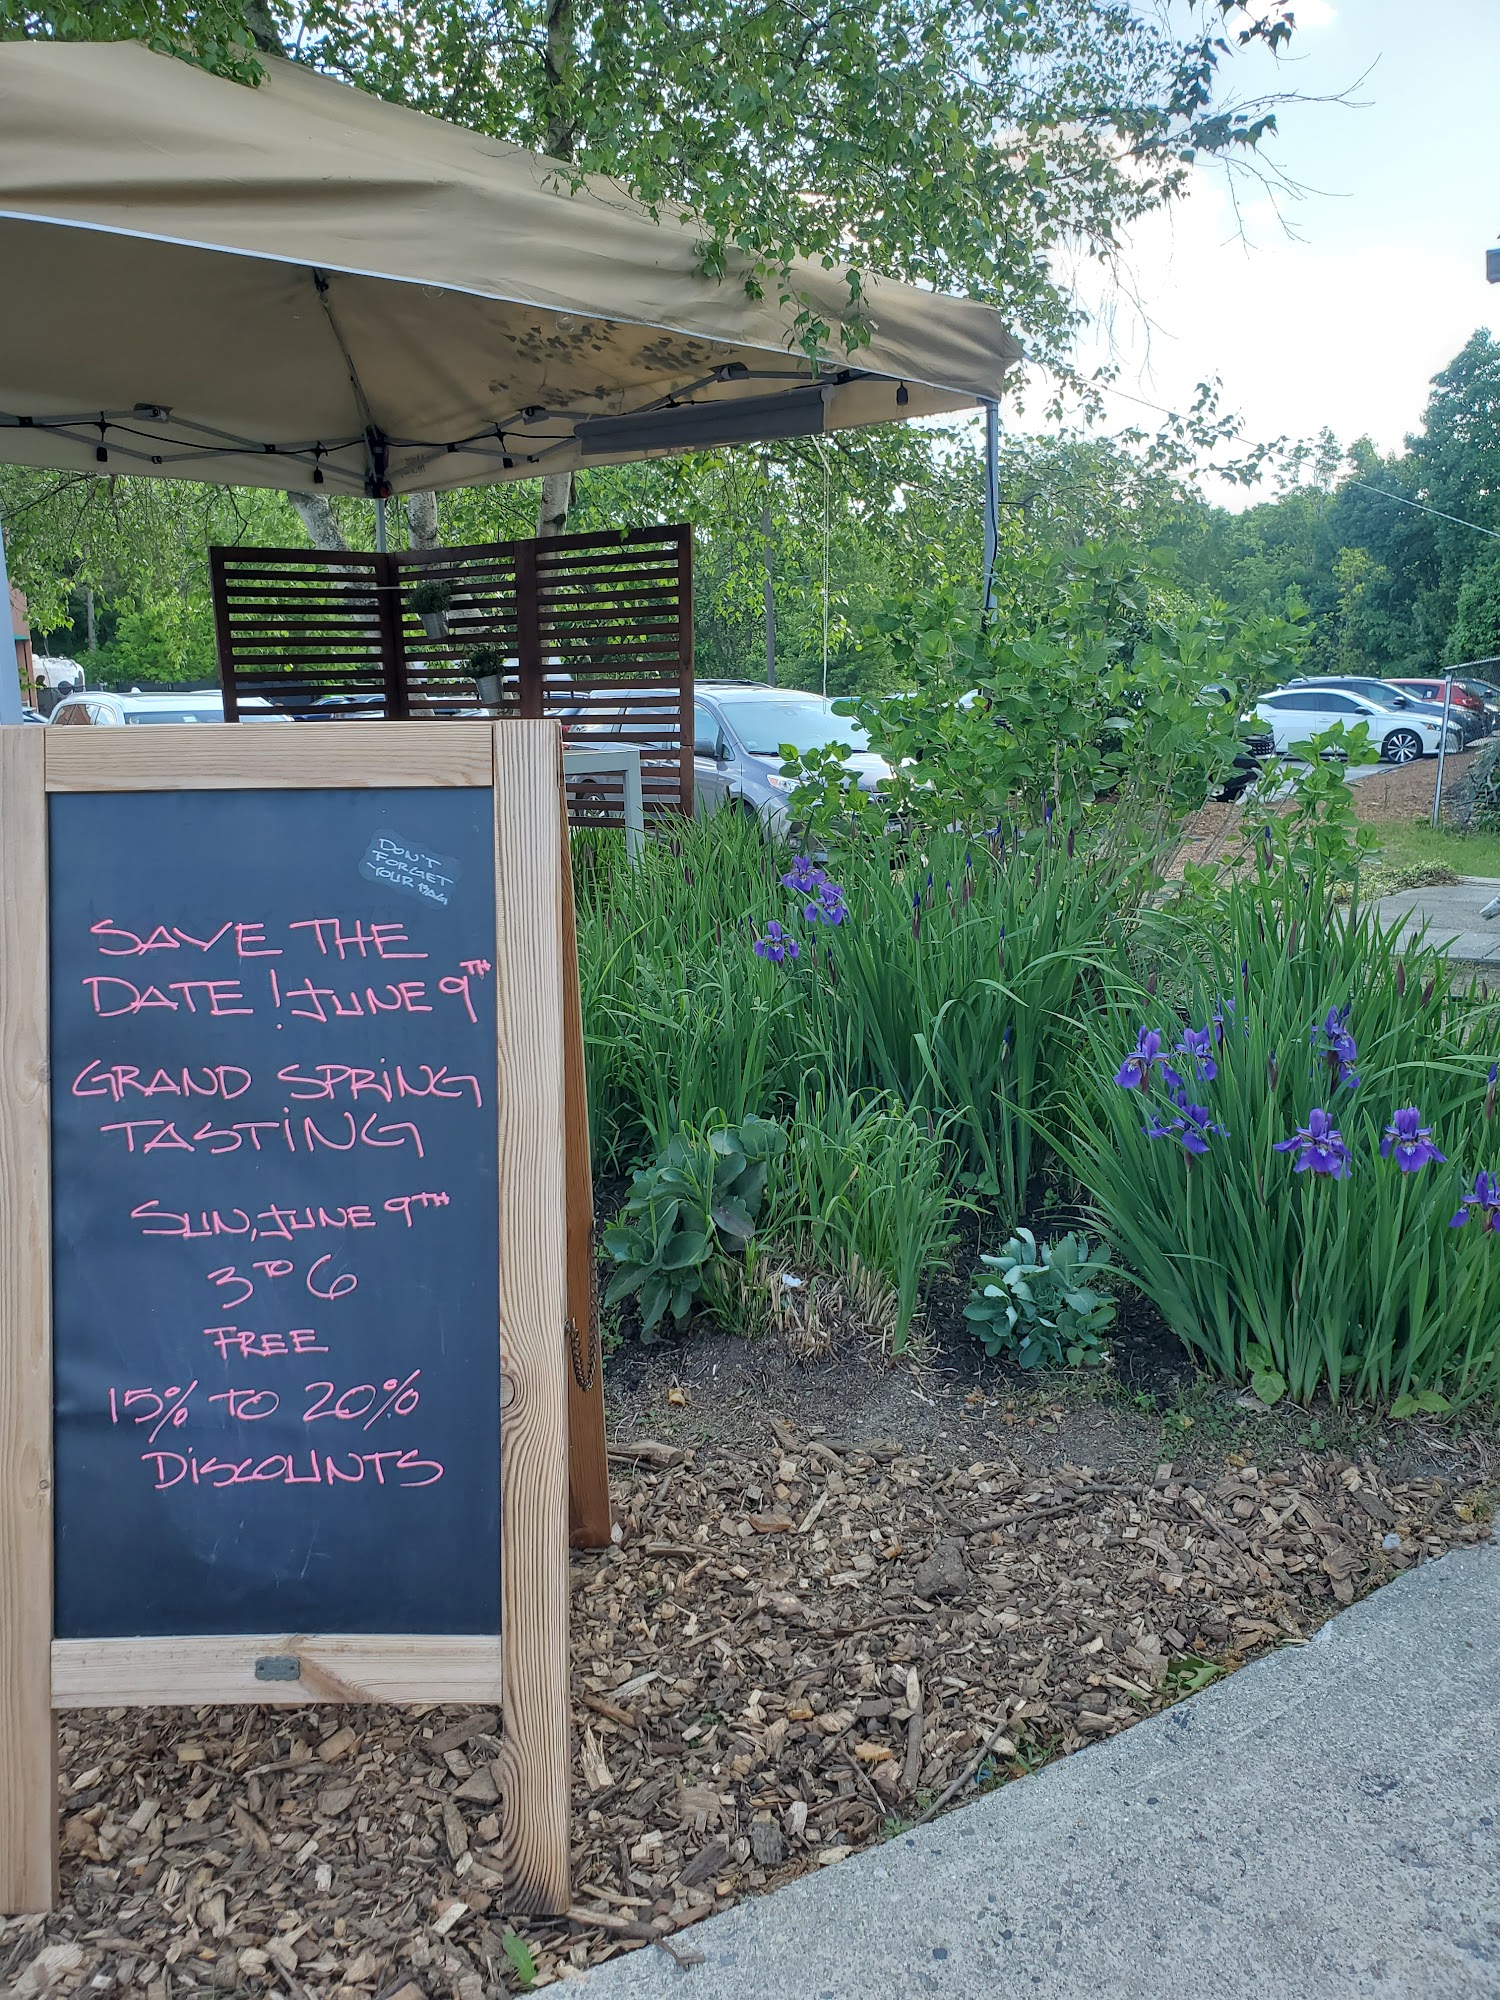 DON'T
FORGET
YOUR BAG
SAVE THE
DATE! JUNE 9TH
GRAND SPRING
TASTING
SUN, JUNE 9TH
3 TO 6
FREE
15% TO 20%
DISCOUNTS